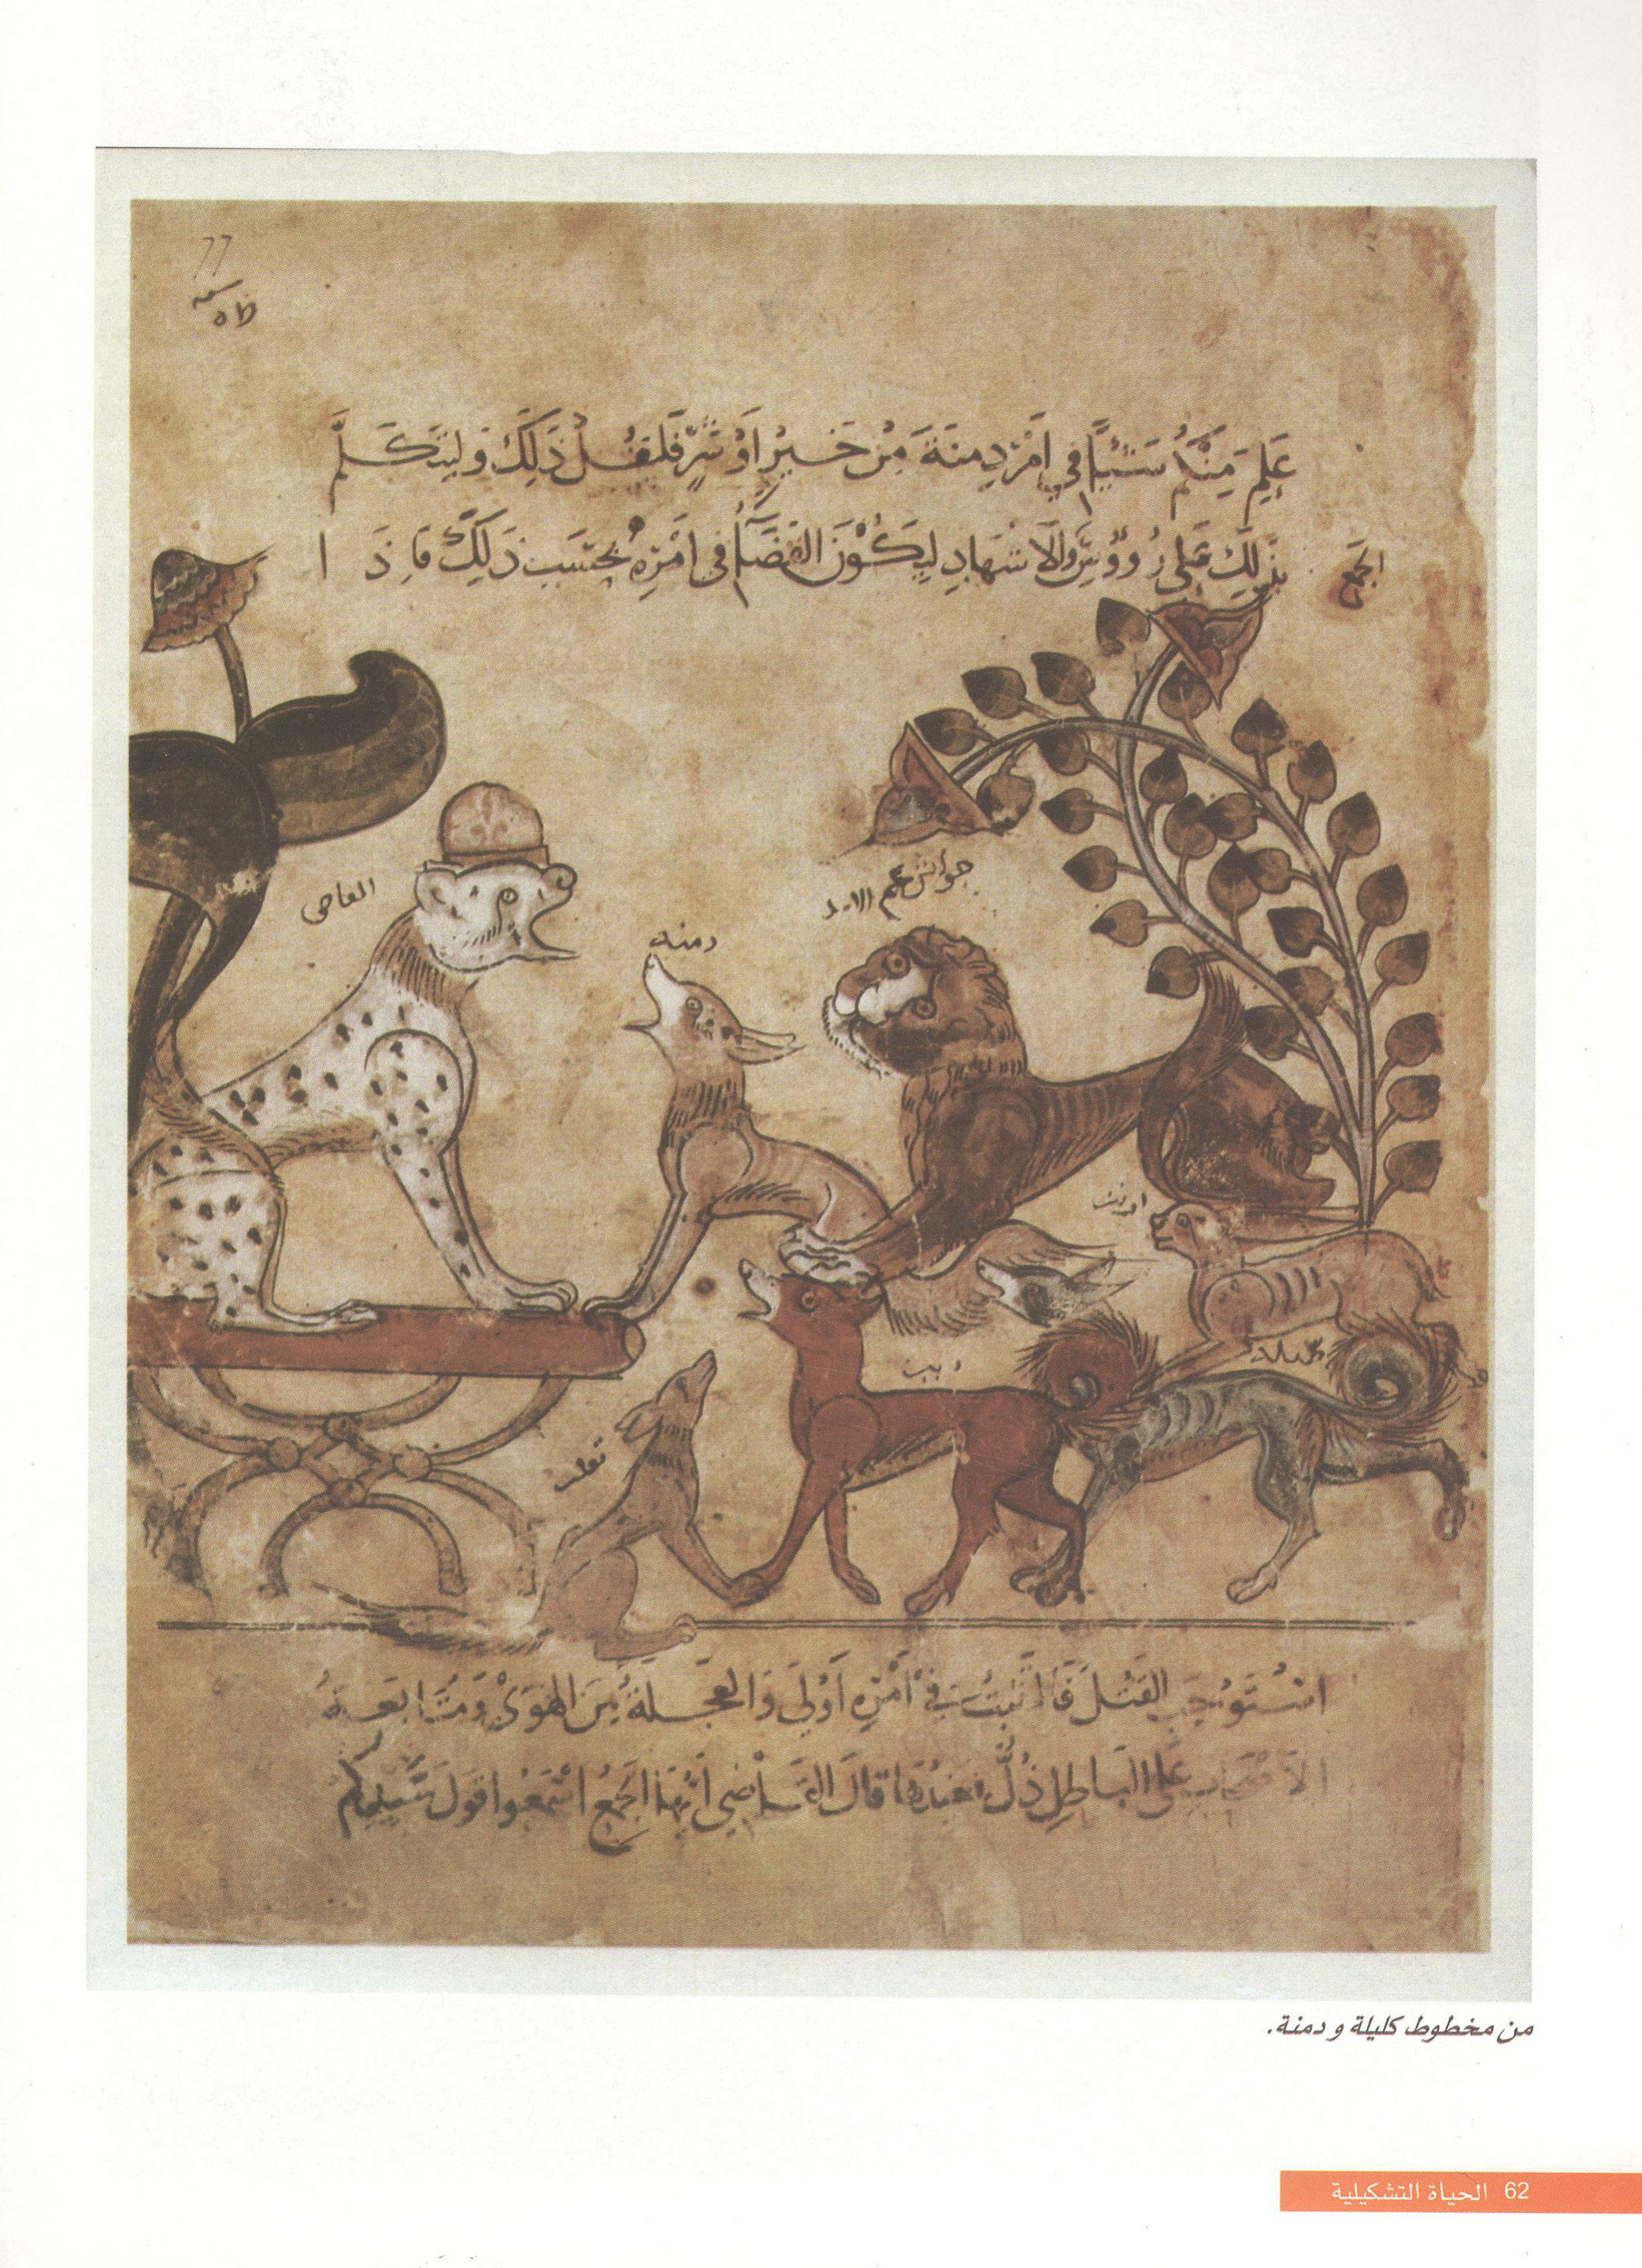 ٦٦
عَلِمَ مِنْكُم شَيْئًا فِي أَمْرِ دِمنَةَ مِنْ خَيْرٍ أَوْ شَرٍّ فَلْيَقُل ذَلِكَ وَليَتَكَلَّم
الجمع
بِذَلِكَ عَلَى رُووُسِ الاَشْهَادِ لِيَكُونَ القَضَآءُ فِي اَمْرِهِ بِحَسَبِ ذَلِكَ فَاِذَا
القاضي
دمنه
جواش عم الاسد
ثعلب
ذيب
كليله
اسْتَوْجَبَ القَتْلَ فَالتَّثَبُّت فِي اَمْرِهِ اَوْلَى وَالعَجَلَةُ مِنَ الهَوَى وَمُتَابَعَةُ
الاَصْحَابِ عَلَى البَاطِلِ ذُلٌّ فعِنْدَهَا قَالَ القَاضِي اَيُّهَا الجَمْعُ اسْمَعُوا قَوْلَ سَيِّدِكُم
من مخطوط كليلة و دمنة.
62 الحياة التشكيلية